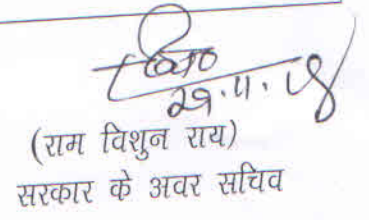 29.11.18
(राम विशुन राय)
सरकार के अवर सचिव